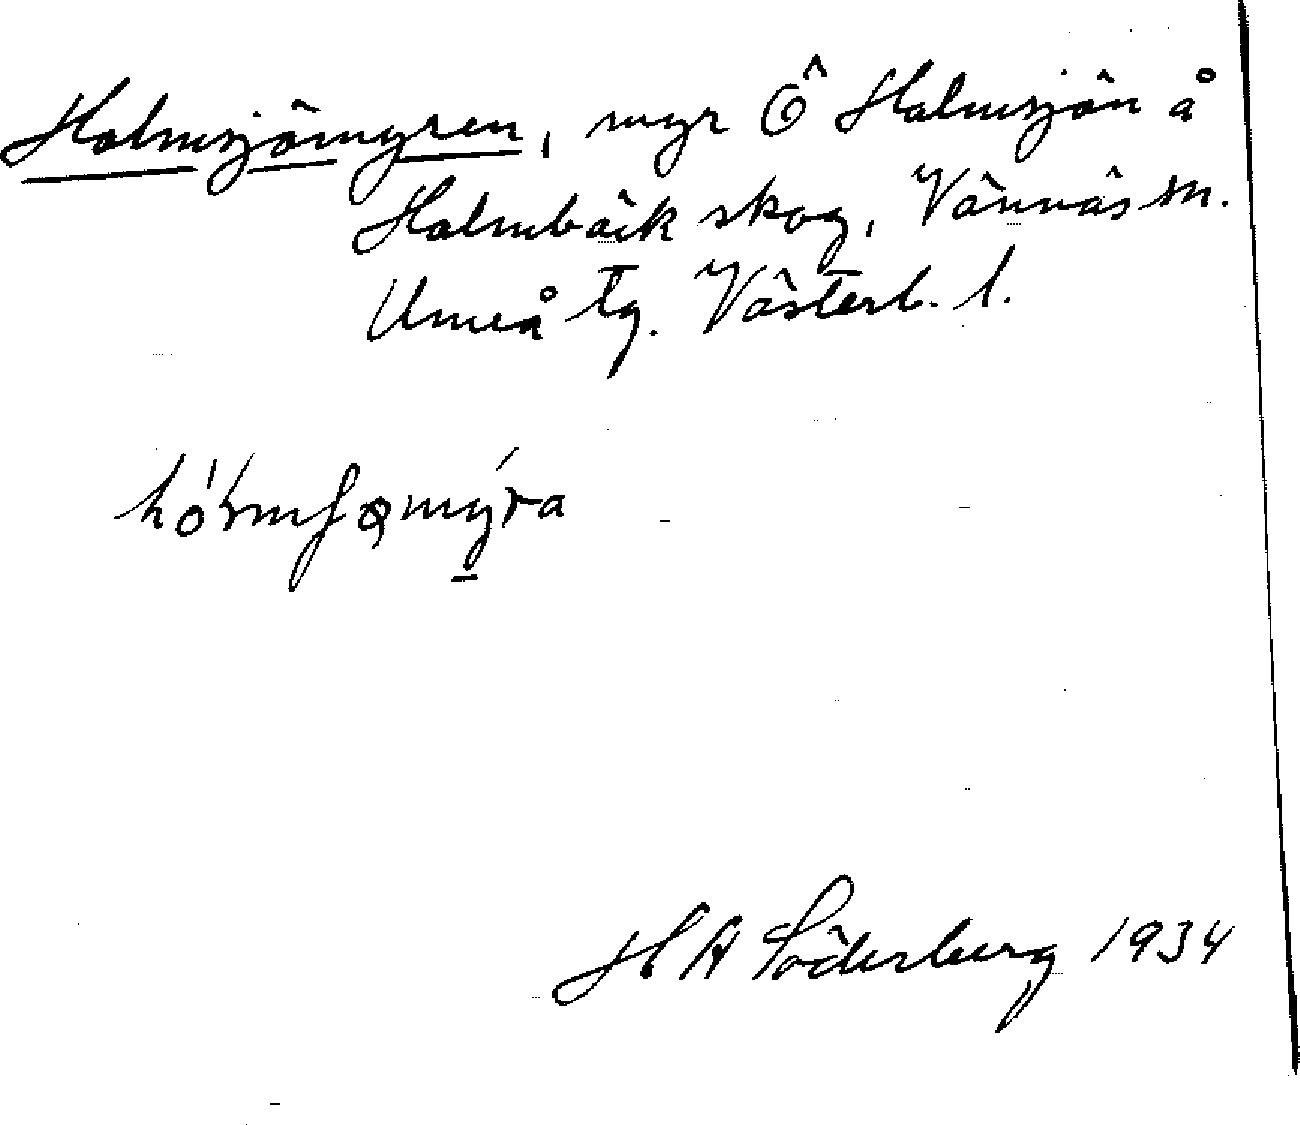 Holmsjömyren, myr Ö Holmsjön å
Holmbäck skog, Vännäs sn.
Umeå tg. Västerb. l.
H A Söderberg 1934